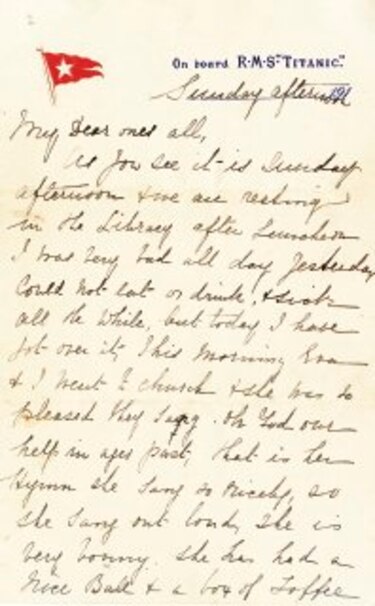 On board R·M·S· "TITANIC."
Sunday afternoon
My Dear ones all,
As you see it is Sunday
afternoon & we are resting
in the Library after Luncheon
I was very bad all day Yesterday
Could not eat or drink, & sick
all the while, but today I have
got over it, This morning Eva
& I went to church & she was so
pleased they sang Oh God our
help in ages past, that is her
Hymn she sang so nicely, so
she sang out loud, she is
very bonny. She has had a
nice Ball & a box of Toffee